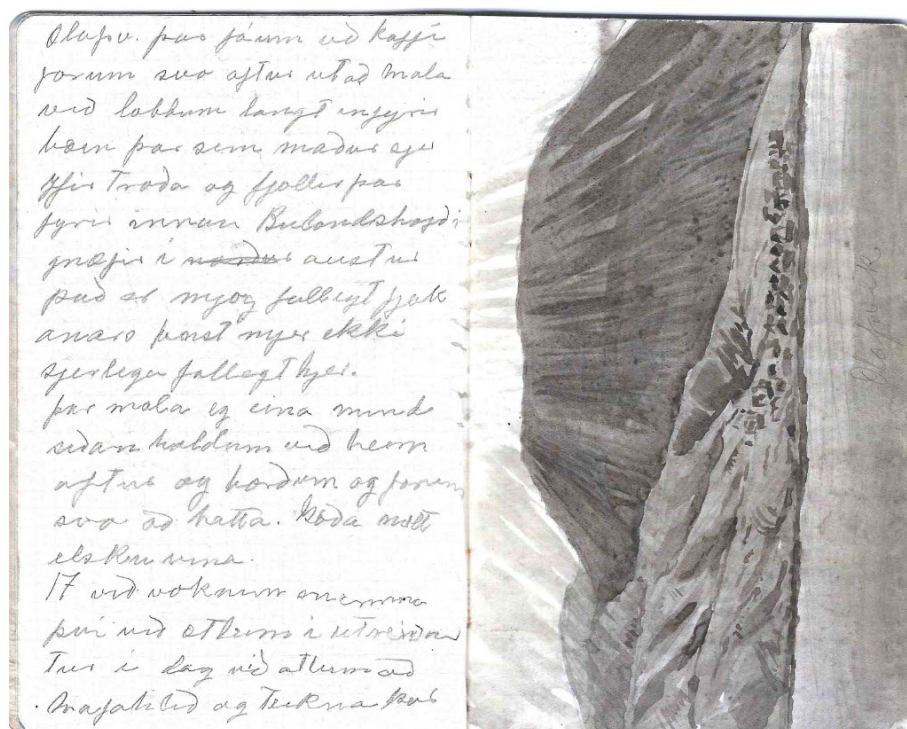 Olafsv. þar fáum við kaffi
forum svo aftur út að mala
við löbbum langt inn fyrir
bæin þar sem maður sjer
yfir Fróða og fjöllin þar
fyrir innan Bulandshöfði
gnæfir í norður austur
það er mjög fallegt fjall
anars þikist mjer ekki
sjerlega fallegt hjer.
þar mala eg eina mind
siðan höldum við heim
aftur og borðum og forum
svo að hatta. Góða nótt
elsku vina.
17 við vöknum snemma
því við ætlum í útreiðar
tur í dag við ætlum að
Mafahlið og teikna þar
Olafsvik.